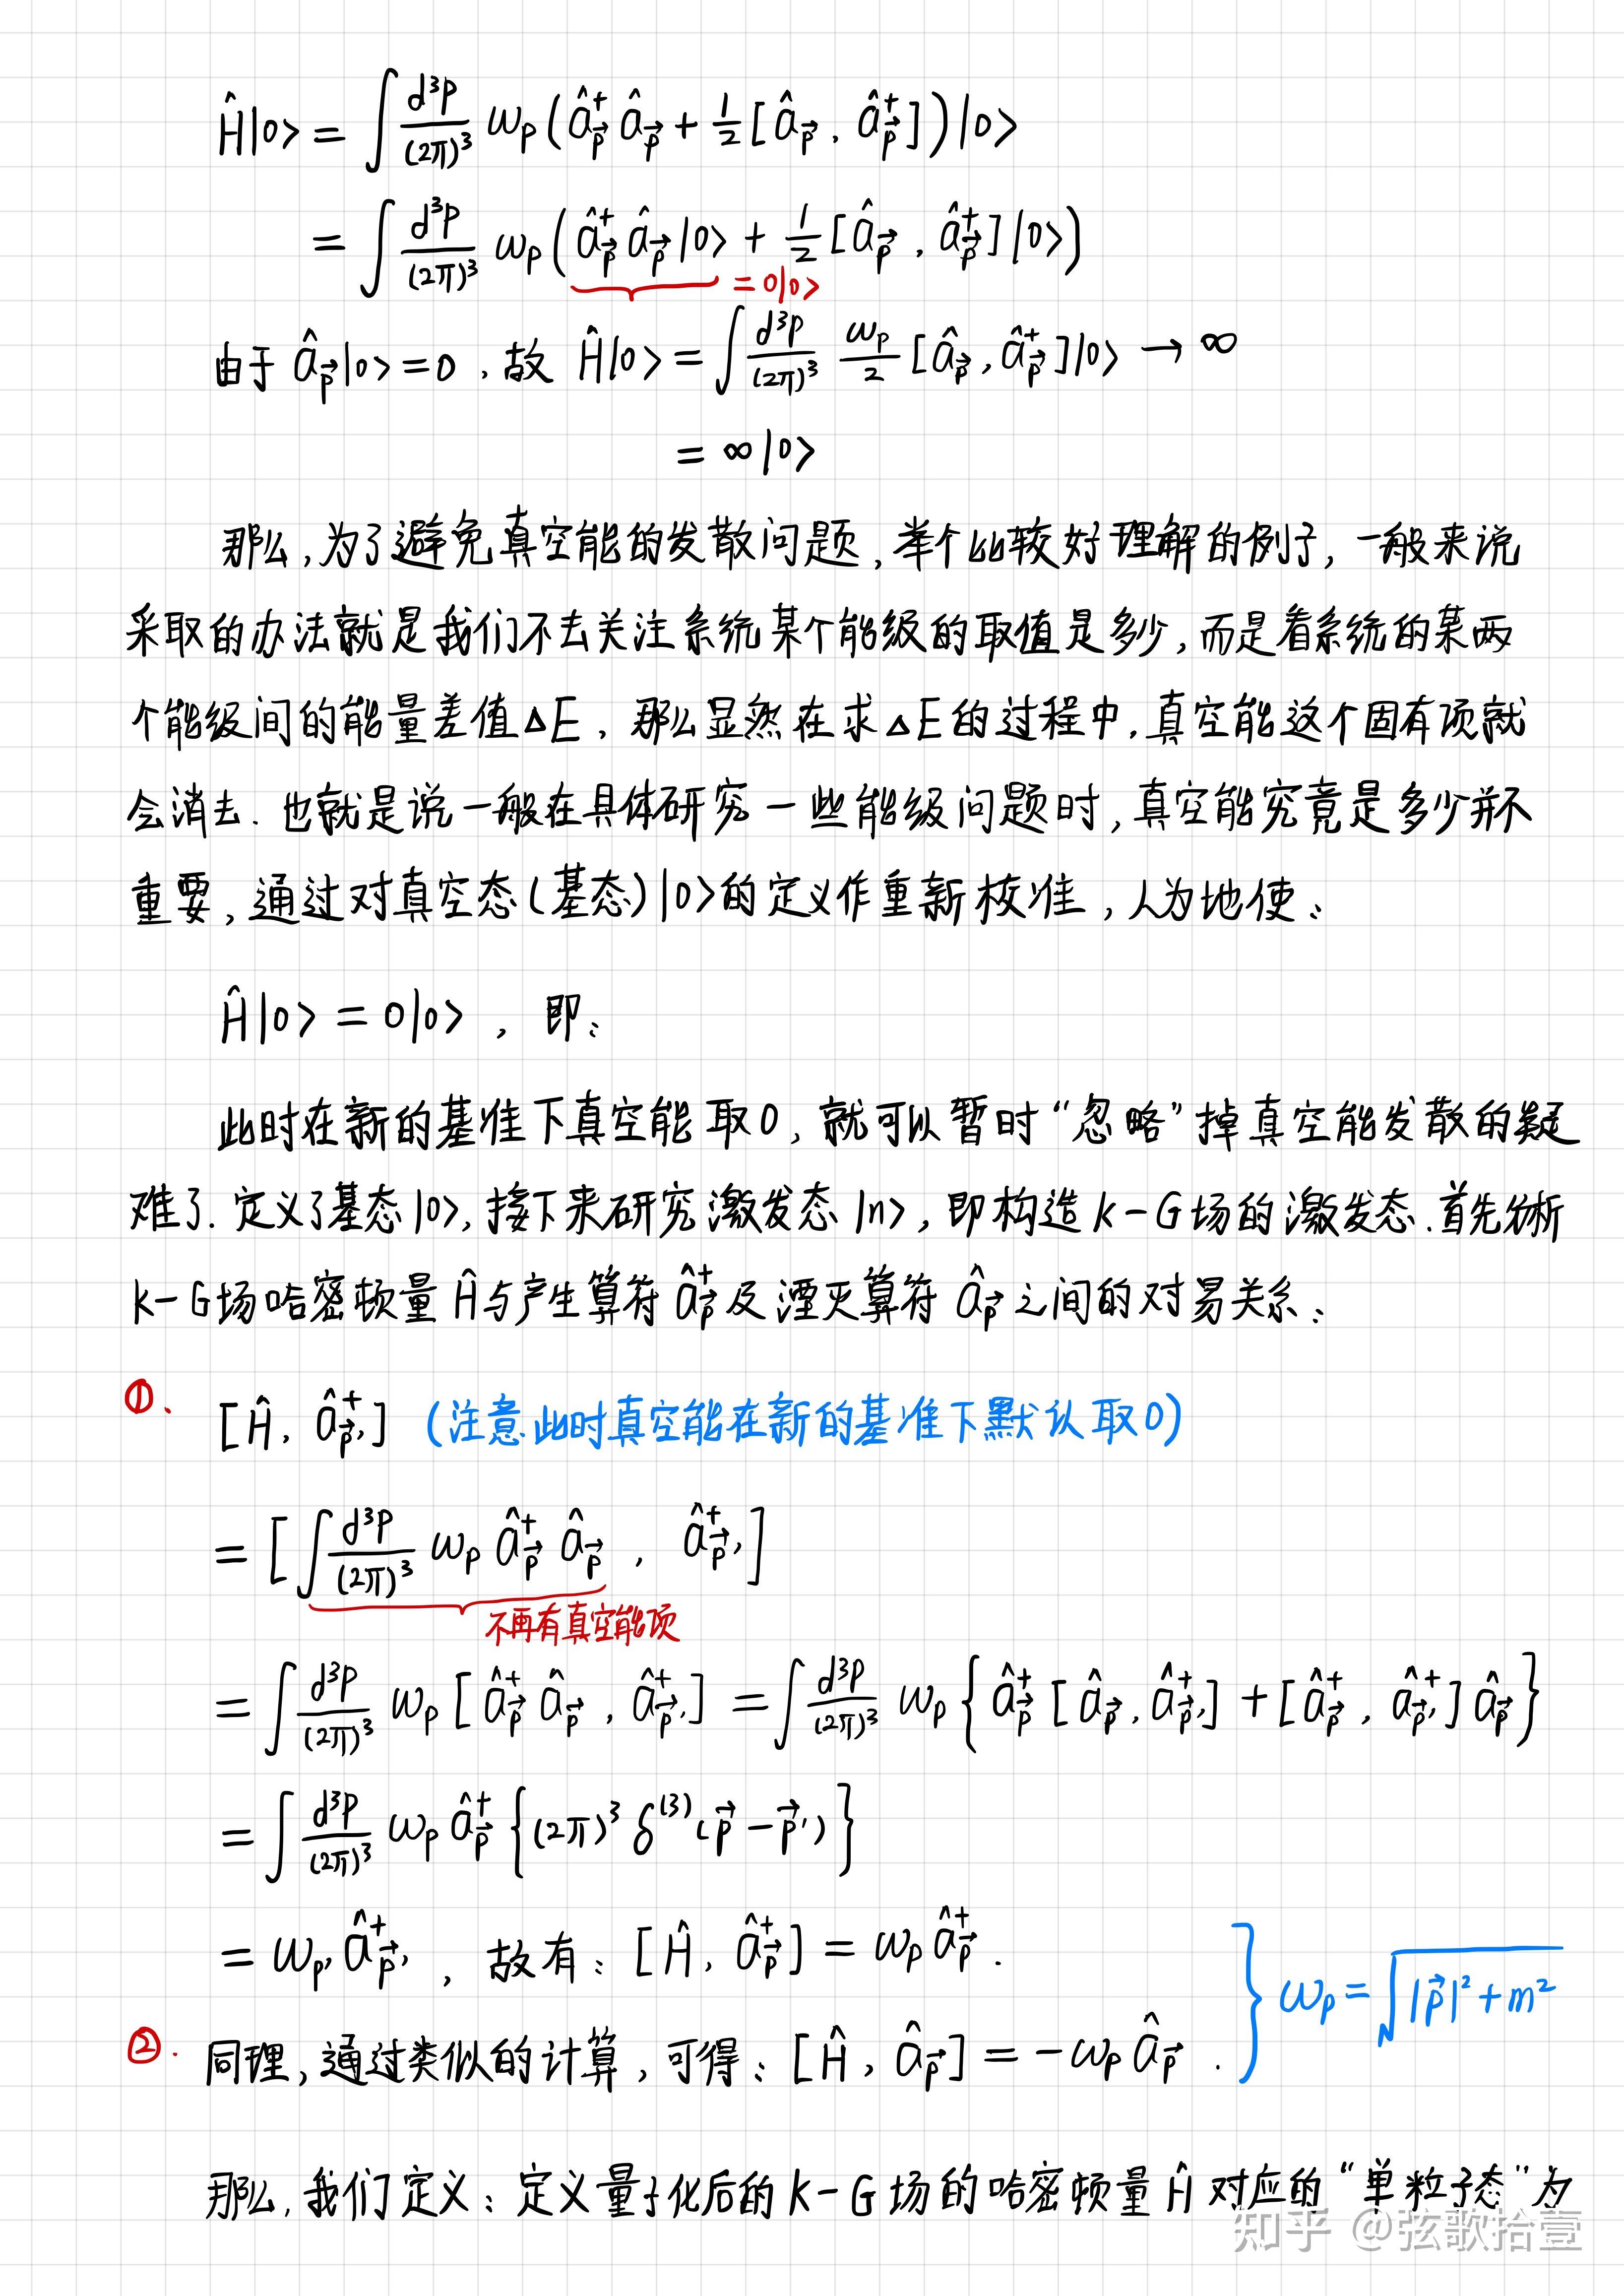 Ĥ|0> = ∫ d³p/(2π)³ ωₚ(â†_p⃗ â_p⃗ + 1/2[â_p⃗, â†_p⃗])|0>
= ∫ d³p/(2π)³ ωₚ(â†_p⃗ â_p⃗|0> + 1/2[â_p⃗, â†_p⃗]|0>)
= 0|0>
由于 â_p⃗|0> = 0, 故 Ĥ|0> = ∫ d³p/(2π)³ ωₚ/2 [â_p⃗, â†_p⃗]|0> → ∞
= ∞|0>
那么,为了避免真空能的发散问题,举个比较好理解的例子,一般来说
采取的办法就是我们不去关注系统某个能级的取值是多少,而是看系统的某两
个能级间的能量差值ΔE,那么显然在求ΔE的过程中,真空能这个固有项就
会消去.也就是说一般在具体研究一些能级问题时,真空能究竟是多少并不
重要,通过对真空态(基态)|0>的定义作重新校准,人为地使:
Ĥ|0> = 0|0>, 即:
此时在新的基准下真空能取0,就可以暂时“忽略”掉真空能发散的疑
难了.定义了基态|0>,接下来研究激发态|n>,即构造K-G场的激发态.首先分析
K-G场哈密顿量Ĥ与产生算符â†_p⃗及湮灭算符â_p⃗之间的对易关系:
①、[Ĥ, â†_p⃗'] (注意此时真空能在新的基准下默认取0)
= [∫ d³p/(2π)³ ωₚ â†_p⃗ â_p⃗, â†_p⃗']
不再有真空能项
= ∫ d³p/(2π)³ ωₚ[â†_p⃗ â_p⃗, â†_p⃗'] = ∫ d³p/(2π)³ ωₚ{â†_p⃗[â_p⃗, â†_p⃗'] + [â†_p⃗, â†_p⃗']â_p⃗}
= ∫ d³p/(2π)³ ωₚ â†_p⃗{(2π)³ δ⁽³⁾(p⃗ - p⃗')}
= ωₚ' â†_p⃗', 故有: [Ĥ, â†_p⃗] = ωₚ â†_p⃗.
②. 同理,通过类似的计算,可得: [Ĥ, â_p⃗] = -ωₚ â_p⃗.
} ωₚ = √(|p⃗|² + m²)
那么,我们定义:定义量子化后的K-G场的哈密顿量Ĥ对应的“单粒子态”为
知乎 @弦歌拾壹